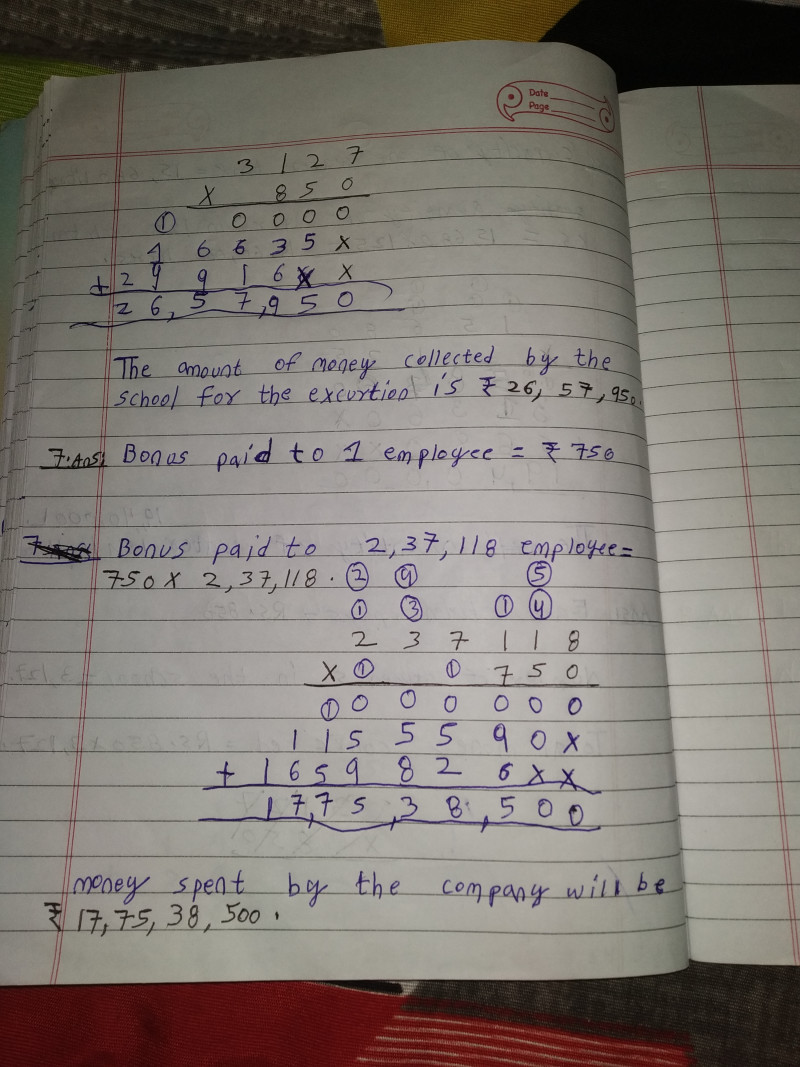 Date
Page
3 1 2 7
X 8 5 0
① 0 0 0 0
1 6 6 3 5 X
+ 2 9 9 1 6 X X
2 6, 5 7, 9 5 0
The amount of money collected by the
school for the excurtion is ₹ 26, 57, 950.
7.Ans: Bonus paid to 1 employee = ₹ 750
Bonus paid to 2,37,118 employee=
750 X 2,37,118. ② ④ ⑤
① ③ ① ④
2 3 7 1 1 8
X ① ① 7 5 0
① 0 0 0 0 0 0
1 1 5 5 5 9 0 X
+ 1 6 5 9 8 2 6 X X
1 7,7 5 ,3 8 ,5 0 0
money spent by the company will be
₹ 17, 75, 38, 500.